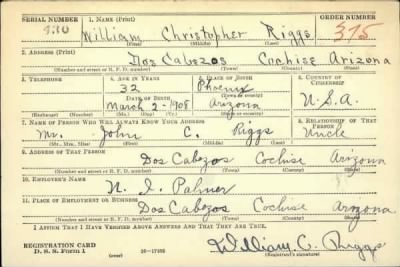 SERIAL NUMBER 1. NAME (Print) ORDER NUMBER
William Christopher Riggs 375
(First) (Middle) (Last)
2. ADDRESS (Print)
Dos Cabezos Cochise Arizona
(Number and street or R. F. D. number) (Town) (County) (State)
3. TELEPHONE 4. AGE IN YEARS 5. PLACE OF BIRTH 6. COUNTRY OF CITIZENSHIP
32 Phoenix
DATE OF BIRTH (Town or county)
March 2-1908 Arizona U.S.A.
(Exchange) (Number) (Mo.) (Day) (Yr.) (State or country)
7. NAME OF PERSON WHO WILL ALWAYS KNOW YOUR ADDRESS 8. RELATIONSHIP OF THAT PERSON
Mr. John C. Riggs Uncle
(Mr., Mrs., Miss) (First) (Middle) (Last)
9. ADDRESS OF THAT PERSON
Dos Cabezos Cochise Arizona
(Number and street or R. F. D. number) (Town) (County) (State)
10. EMPLOYER'S NAME
Palmer
11. PLACE OF EMPLOYMENT OR BUSINESS
Dos Cabezos Cochise Arizona
(Number and street or R. F. D. number) (Town) (County) (State)
I AFFIRM THAT I HAVE VERIFIED ABOVE ANSWERS AND THAT THEY ARE TRUE.
REGISTRATION CARD
D. S. S. Form 1 (over) 16-17105 William C. Riggs
(Registrant's signature)